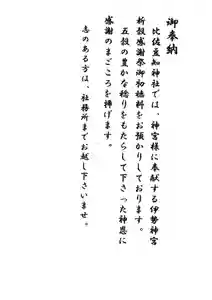 御奉納
比佐豆知神社では、神宮様に奉献する伊勢神宮
祈穀感謝祭御初穂料をお預かりしております。
五穀の豊かな稔りをもたらして下さった神恩に
感謝のまごころを捧げます。
志のある方は、社務所までお越し下さいませ。